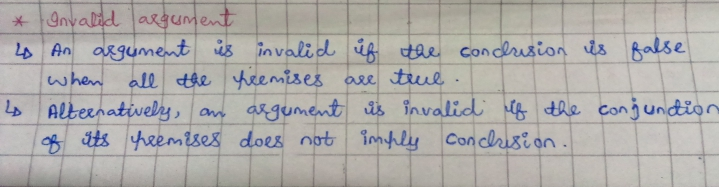 * Invalid argument
↳ An argument is invalid if the conclusion is false
when all the premises are true.
↳ Alternatively, an argument is invalid if the conjunction
of its premises does not imply conclusion.